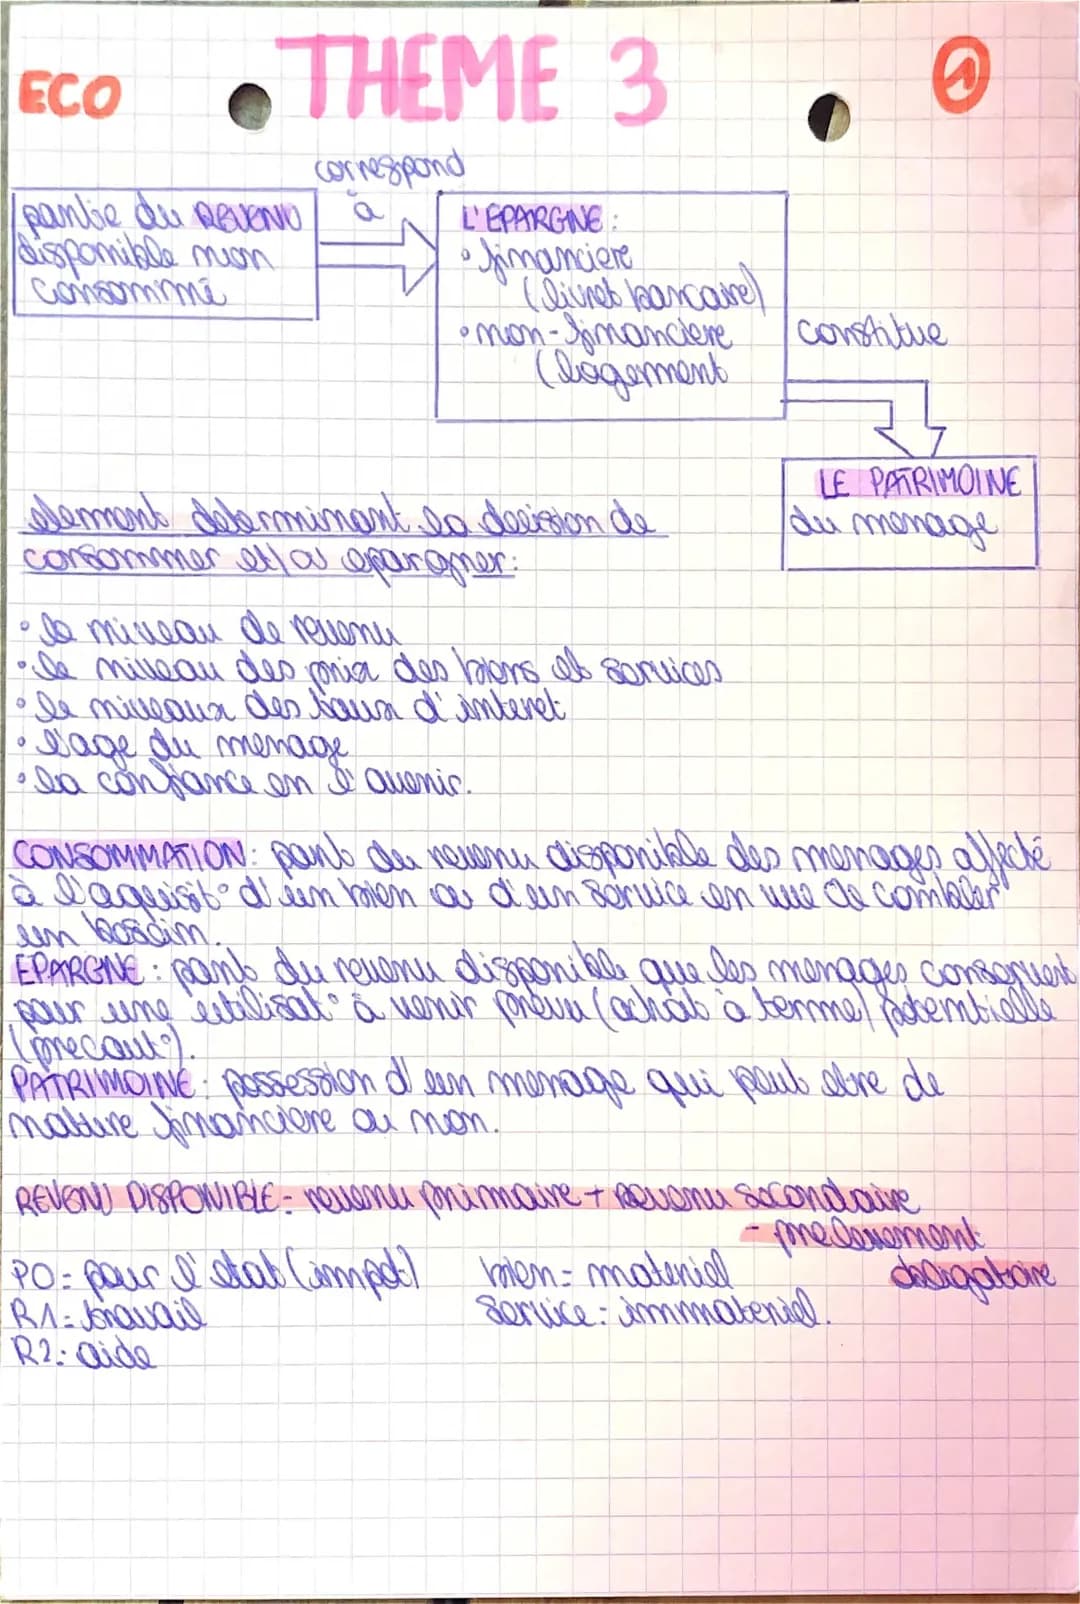 ECO
THEME 3
1
correspond
à
partie du REVENU
disponible non
consommé
L'EPARGNE :
• financiere
(livret bancaire)
• non-financiere
(logement
constitue
LE PATRIMOINE
du menage
element determinant la decision de
consommer et/ou epargner:
• le niveau de revenu
• le niveau des prix des biens et services
• le niveaux des taux d'interet
• l'age du menage
• la confiance en l'avenir.
CONSOMMATION: part du revenu disponible des menages affecté
à l'aquisit° d'un bien ou d'un service en vue de combler
un besoin.
EPARGNE : part du revenu disponible que les menages conservent
pour une utilisat° à venir prevu (achat à terme) potentielle
(precaut°).
PATRIMOINE : possession d'un menage qui peut etre de
nature financiere ou non.
REVENU DISPONIBLE = revenu primaire + revenu secondaire
- prelevement
obligatoire
PO = pour l'etat (impot)
R1 = travail
R2 : aide
bien = materiel
service : immateriel.